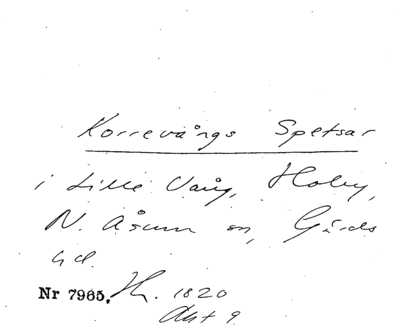 Korrevångs Spetsar
i Lille Vång, Hoby,
N. Åsum sn, Gärds
hd.
Nr 7965. H. 1820
Akt 9